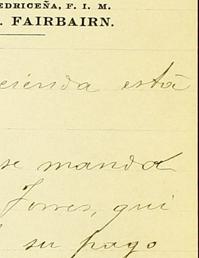 EDRICEÑA, F. I. M.
. FAIRBAIRN.
cienda está
se manda
Torres, qui
su pago